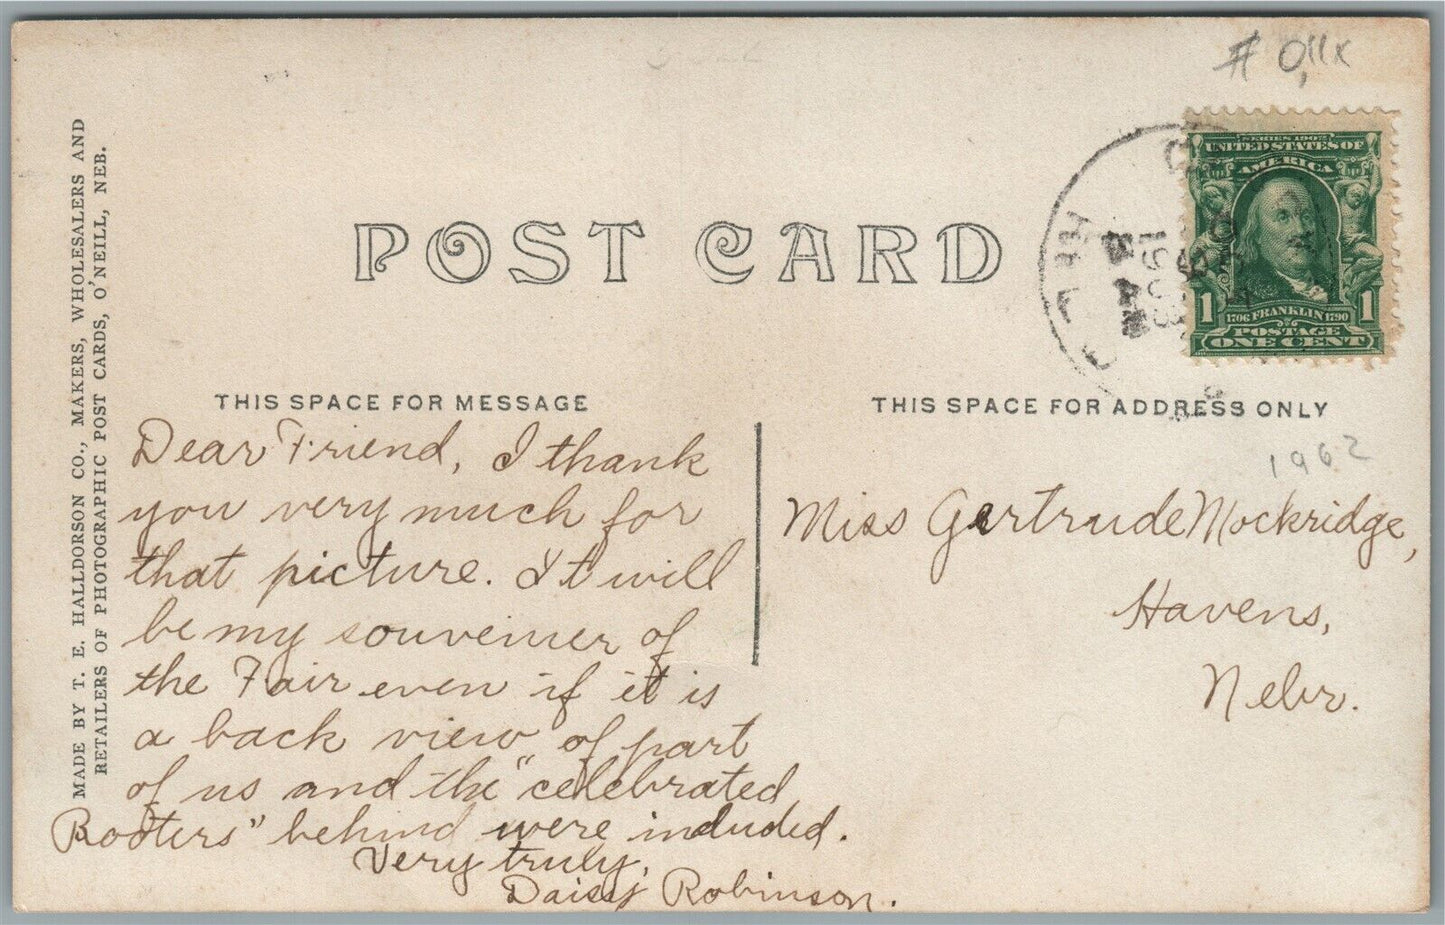 # 0,11x
SERIES 1902
UNITED STATES OF
AMERICA
1 1706 FRANKLIN 1790 1
POSTAGE
ONE CENT
8 AM
1908
POST CARD
MADE BY T. E. HALLDORSON CO., MAKERS, WHOLESALERS AND
RETAILERS OF PHOTOGRAPHIC POST CARDS, O'NEILL, NEB.
THIS SPACE FOR MESSAGE
Dear Friend, I thank
you very much for
that picture. It will
be my souvenier of
the Fair even if it is
a back view of part
of us and the "celebrated
Rooters" behind were included.
Very truly,
Daisy Robinson.
THIS SPACE FOR ADDRESS ONLY
1962
Miss Gertrude Mockridge,
Havens,
Nebr.